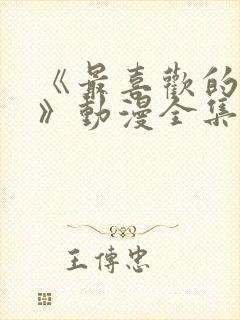 《最喜歡的
》動漫全集
王傳忠